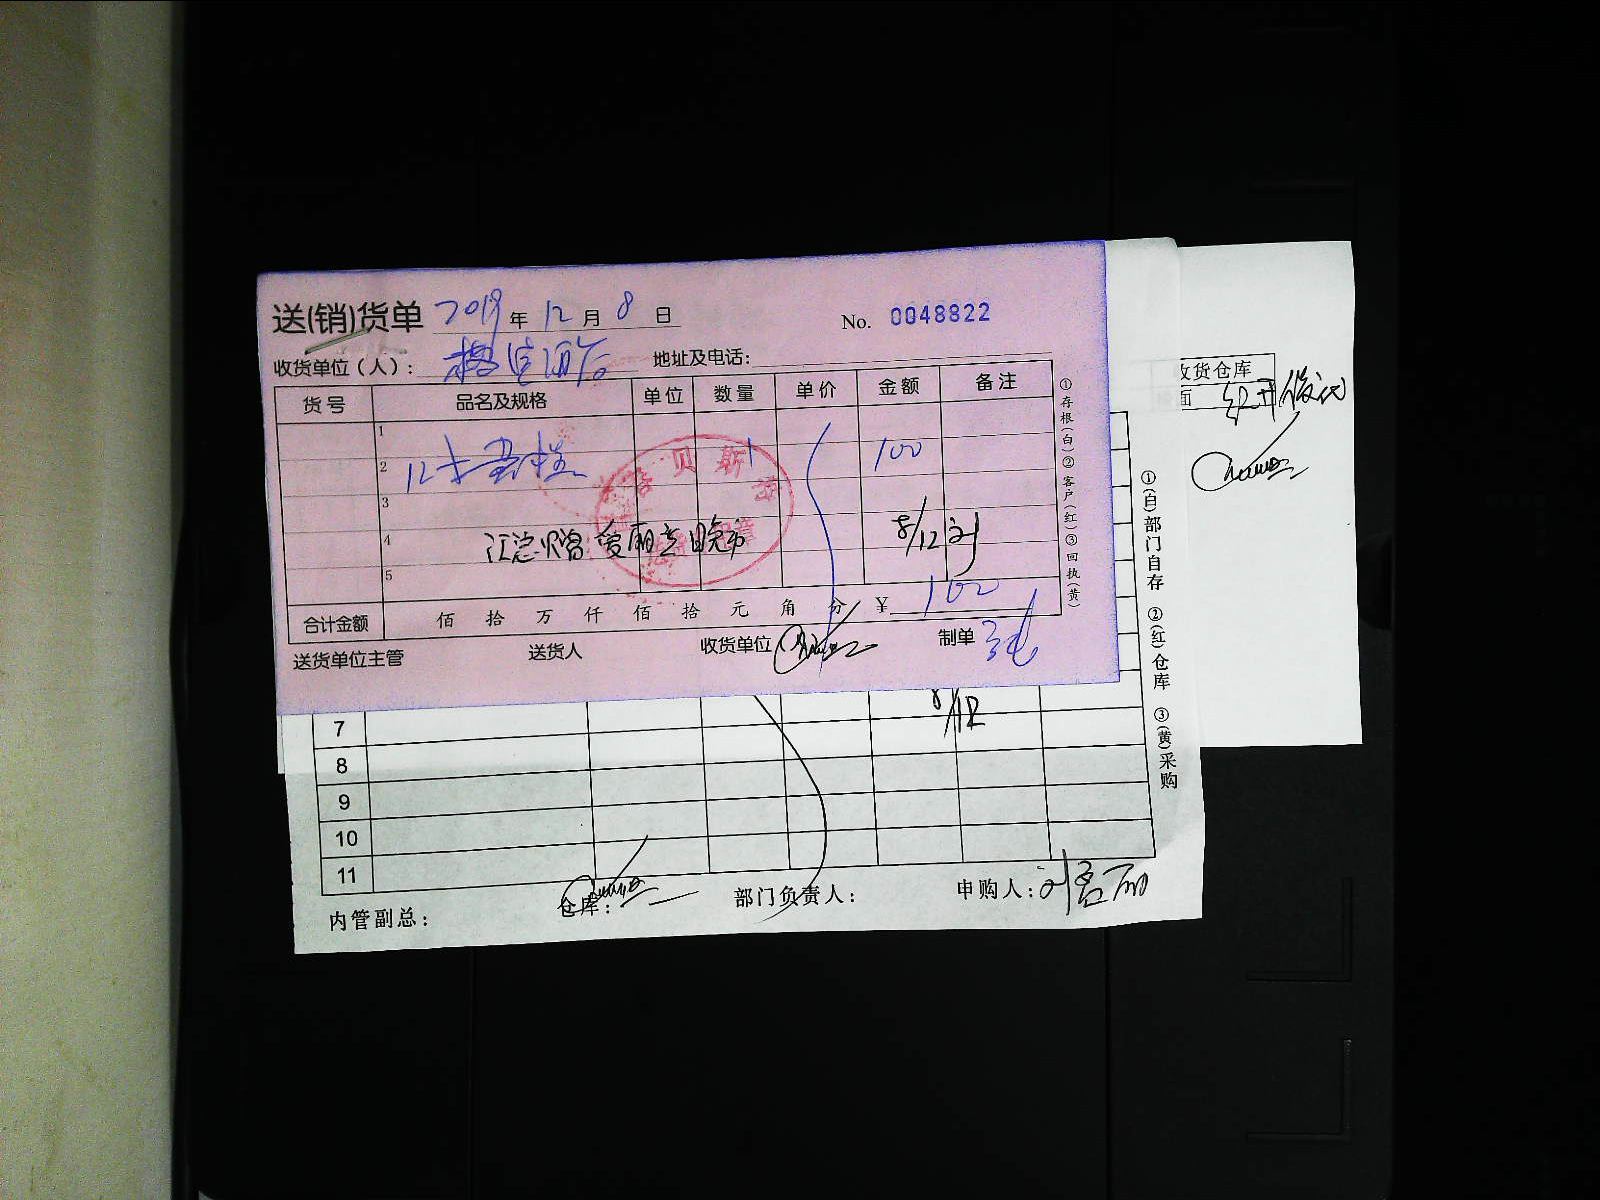 送(销)货单 2019 年 12 月 8 日 No. 0048822
收货单位（人）: 酒店 地址及电话:
货号 品名及规格 单位 数量 单价 金额 备注
1
2 12寸蛋糕 1 100
3
4 江总赠 8/12 刘
5
合计金额 佰 拾 万 仟 佰 拾 元 角 分 ¥ 100
送货单位主管 送货人 收货单位 制单
①存根(白)②客户(红)③回执(黄)
贝斯
收货仓库
面
8/12
7
8
9
10
11
内管副总: 仓库: 部门负责人: 申购人:
①(白)部门自存 ②(红)仓库 ③(黄)采购